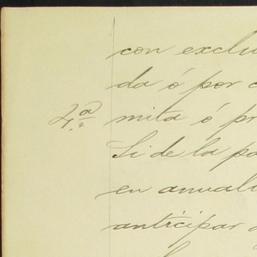 con exclu
da ó por c
4.ª mita ó pr
Si de la pa
en anuali
anticipar d